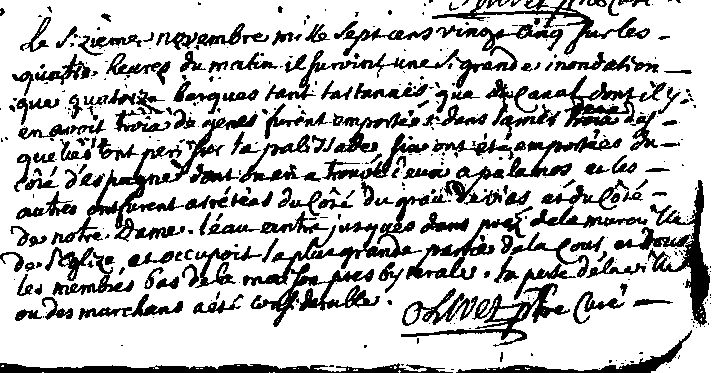 Le sizieme novembre mille sept cens vingt cinq sur les
quatre heures du matin il survint une si grande inondation
que quatorze barques tant tartannes que du Canal dont il y
en avoit trois de genes furent emportées dans la mer trois des
quelles ont peri sur la palissade six ont été emportées du
côté d'espagne dont on en a trouvé deux a palamos et les
autres ont furent arrétées du Côté du grau de vias et du Côté
de notre Dame. l'eau entra jusques dans prez de la muraille
de l'Eglize et occupoit la plus grande partie de la Cour, et tous
les membres bas de la maison presbyterale. la perte de la ville
ou des marchans a été considerable. Olivet ptre Curé